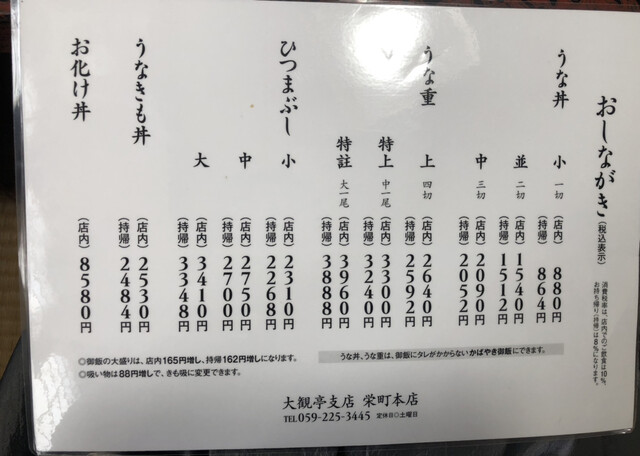 おしながき(税込表示)
消費税率は、店内でのご飲食は10%、
お持ち帰り(持帰)は8%になります。
うな丼 小 一切 (店内)880円
(持帰)864円
並 二切 (店内)1540円
(持帰)1512円
中 三切 (店内)2090円
(持帰)2052円
うな重 上 四切 (店内)2640円
(持帰)2592円
特上 中一尾 (店内)3300円
(持帰)3240円
特註 大一尾 (店内)3960円
(持帰)3888円
ひつまぶし 小 (店内)2310円
(持帰)2268円
中 (店内)2750円
(持帰)2700円
大 (店内)3410円
(持帰)3348円
うなきも丼 (店内)2530円
(持帰)2484円
お化け丼 (店内)8580円
うな丼、うな重は、御飯にタレがかからないかばやき御飯にできます。
◎御飯の大盛りは、店内165円増し、持帰162円増しになります。
◎吸い物は88円増しで、きも吸に変更できます。
大観亭支店 栄町本店
TEL 059-225-3445 定休日◎土曜日